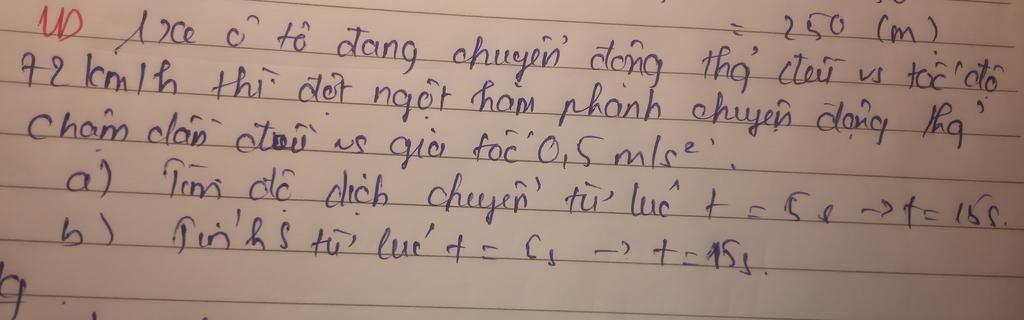 = 250 (m)
VD 1 xe ô tô đang chuyển động thg đều vs tốc độ
72 km/h thì đột ngột hãm phanh chuyển động thg
chậm dần đều vs gia tốc 0,5 m/s².
a) Tìm độ dịch chuyển từ lúc t = 5s → t = 15s.
b) Tính S từ lúc t = 5s → t = 15s.